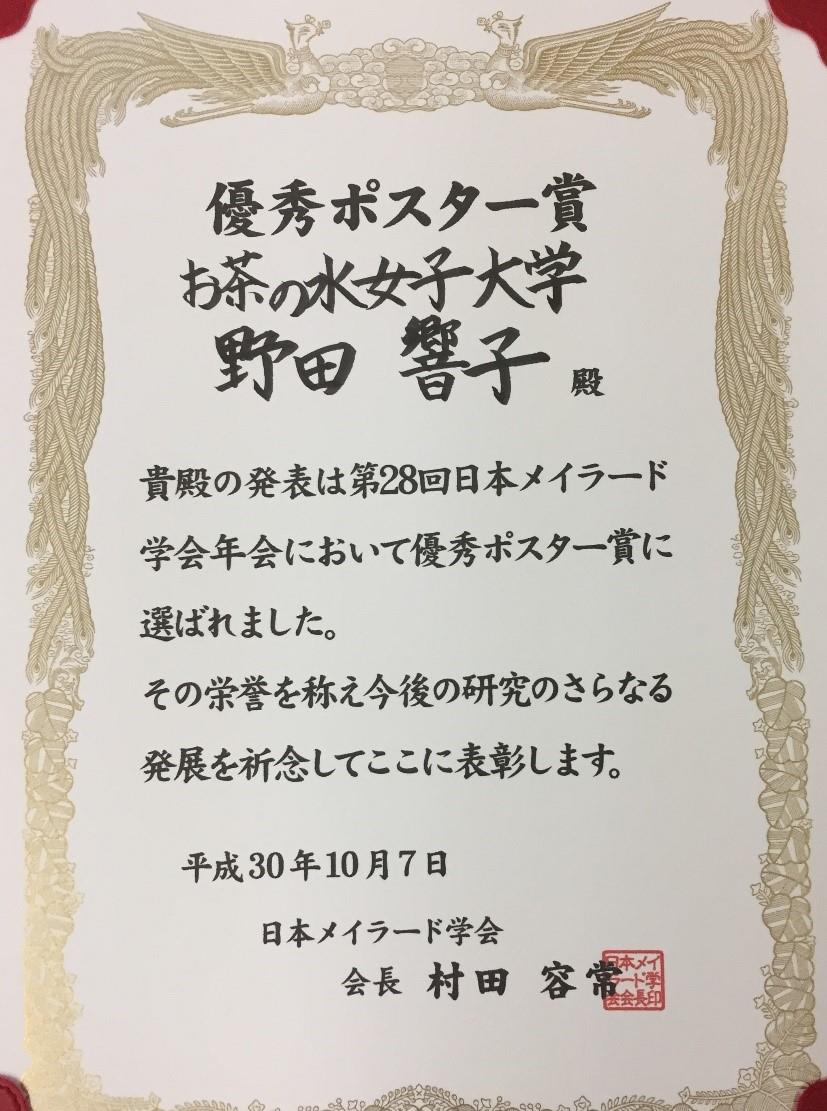 優秀ポスター賞
お茶の水女子大学
野田 響子 殿
貴殿の発表は第28回日本メイラード
学会年会において優秀ポスター賞に
選ばれました。
その栄誉を称え今後の研究のさらなる
発展を祈念してここに表彰します。
平成30年10月7日
日本メイラード学会
会長 村田 容常
日本メイ
ラード学
会会長印